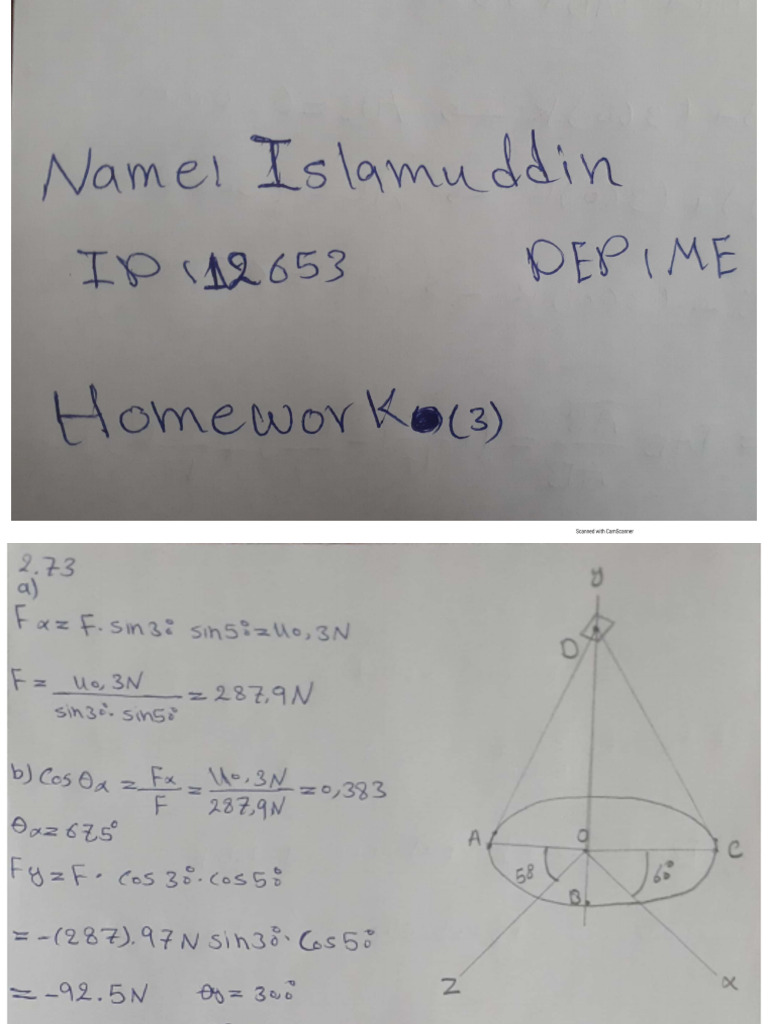 Name: Islamuddin
ID: 12653 DEP: ME
Homework (3)
Scanned with CamScanner
2.73
a)
Fx = F. sin30° sin50° = 110,3N
F = 110,3N / sin30°. sin50° = 287,9N
b) Cosθx = Fx / F = 110,3N / 287,9N = 0,383
θx = 67,5°
Fy = F. cos30°. cos50°
= -(287).97N sin30°. Cos50°
= -92.5N θy = 300°
y
D
A O C
58 60°
B
Z x